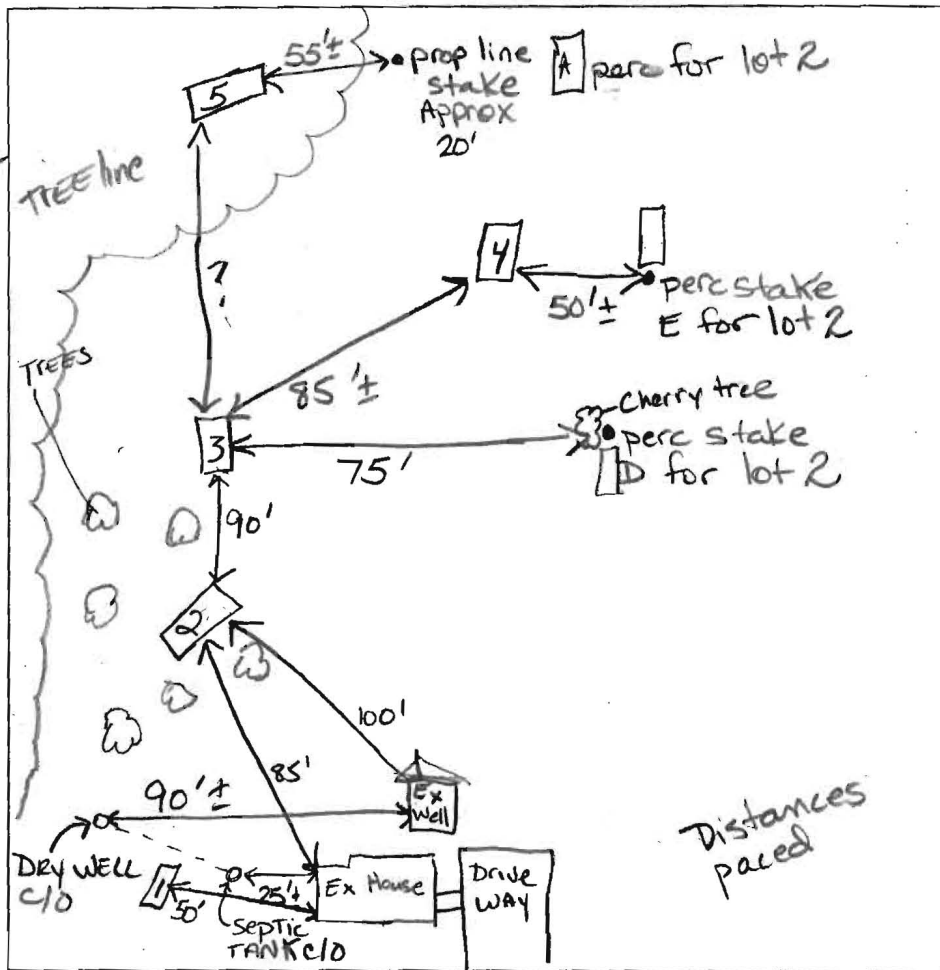 55'±
prop line
stake
Approx
20'
A
perc for lot 2
5
TREE line
?
4
50'±
perc stake
E for lot 2
TREES
85'±
3
75'
Cherry tree
perc stake
D for lot 2
90'
2
100'
85'
90'±
Ex
Well
Distances
paced
DRY WELL
C/O
1
50'
25'±
SEPTIC
TANK C/O
Ex House
Drive
WAY